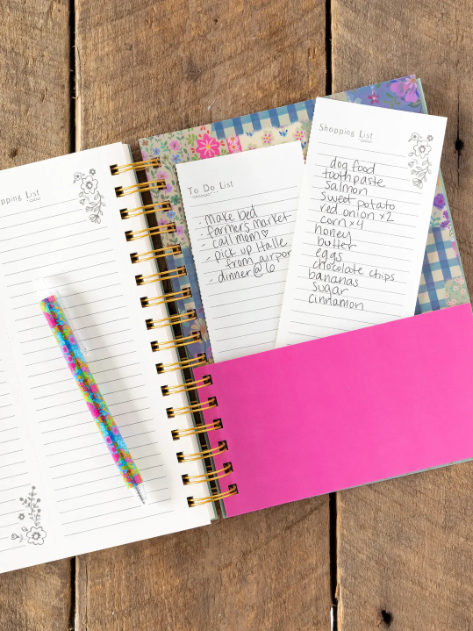 Shopping List
To Do List
- make bed
- farmers market
- call mom ♡
- pick up Halle
from airport
- dinner @ 6
Shopping List
dog food
toothpaste
salmon
sweet potato
red onion x2
corn x4
honey
butter
eggs
chocolate chips
bananas
sugar
cinnamon